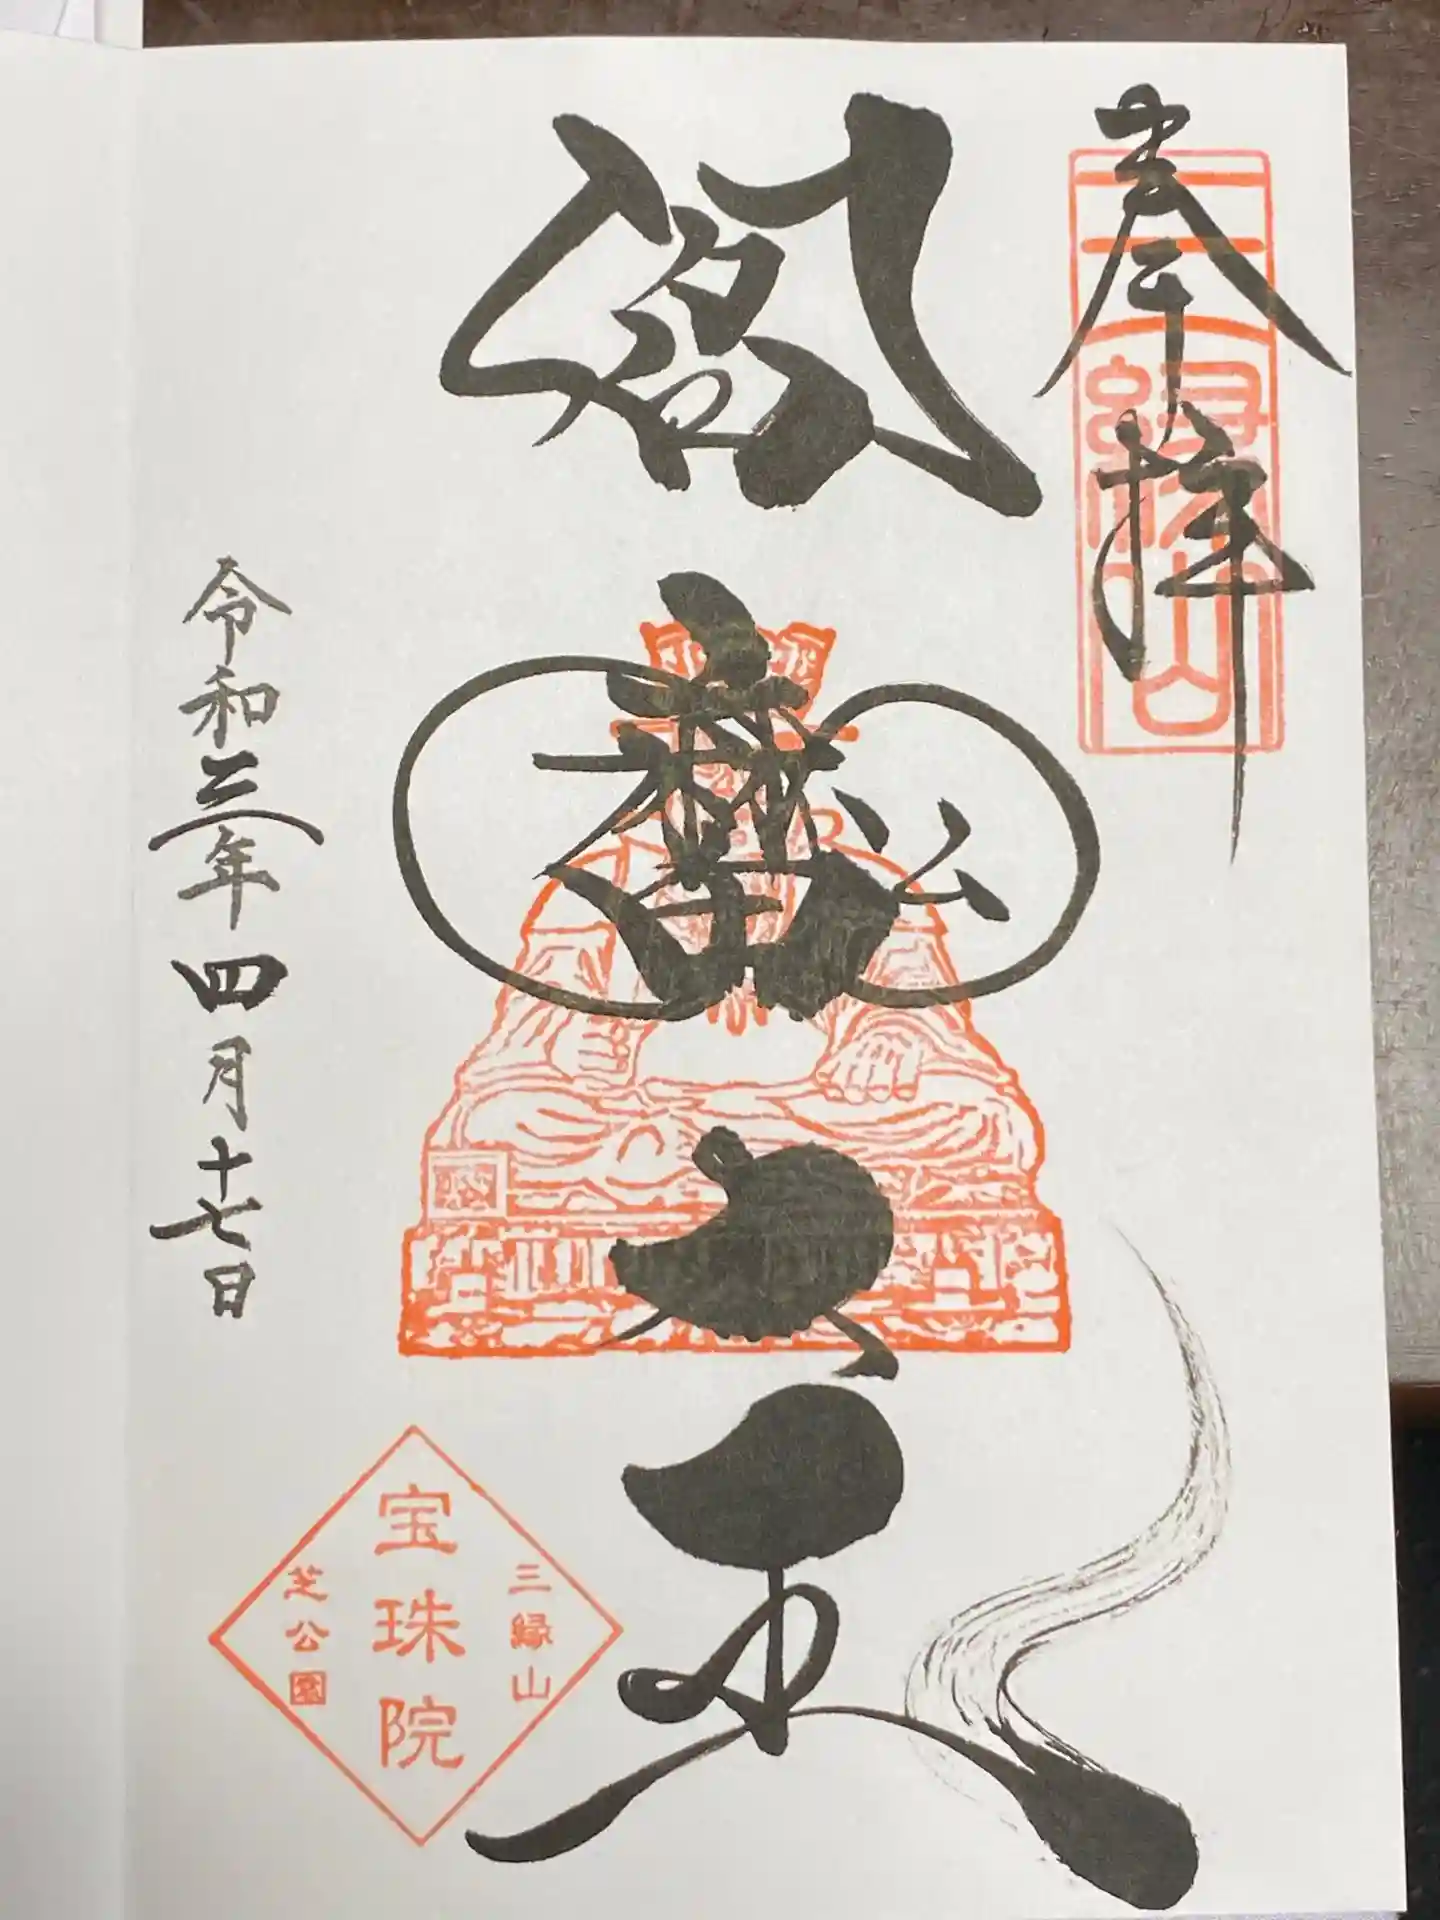 奉拝
三縁山
閻魔大王
令和三年四月十七日
三縁山
宝珠院
芝公園